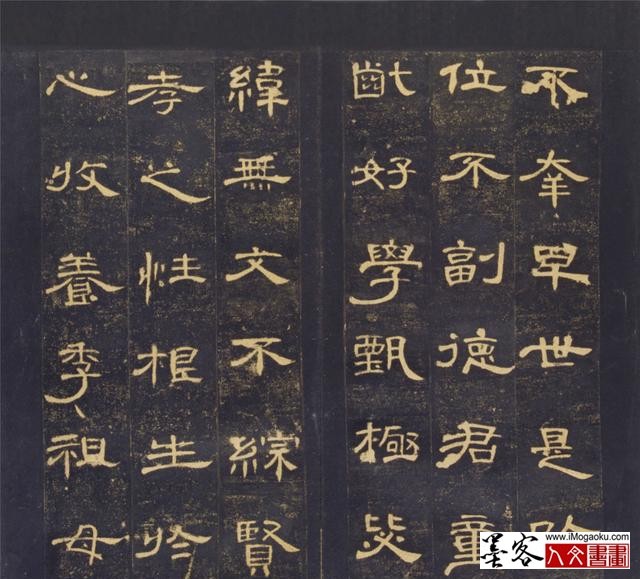 不幸早世是以
位不副德君童
齔好學甄極毖
緯無文不綜賢
孝之性根生於
心收養季祖母
墨客
www.iMogaoku.com
人文書畫